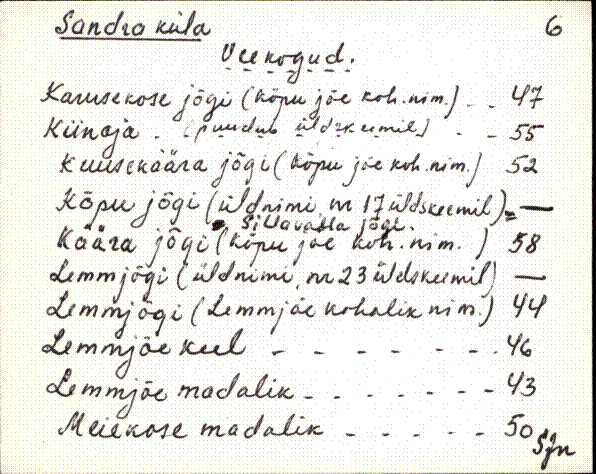 Sandra küla 6
Veekogud.
Karusekose jõgi (Kõpu jõe koh.nim.) - - 47
Kiinoja - (puudub üldskeemil) - - 55
Kuusekäära jõgi (Kõpu jõe koh.nim.) 52
Kõpu jõgi (üldnimi nr 17 üldskeemil) - —
Sillavalla jõgi.
Käära jõgi (Kõpu jõe koh.nim.) 58
Lemmjõgi (üldnimi, nr 23 üldskeemil) —
Lemmjõgi (Lemmjõe kohalik nim.) 44
Lemmjõe keel - - - - - - 46
Lemmjõe madalik - - - - - - - 43
Meiekose madalik - - - - - 50